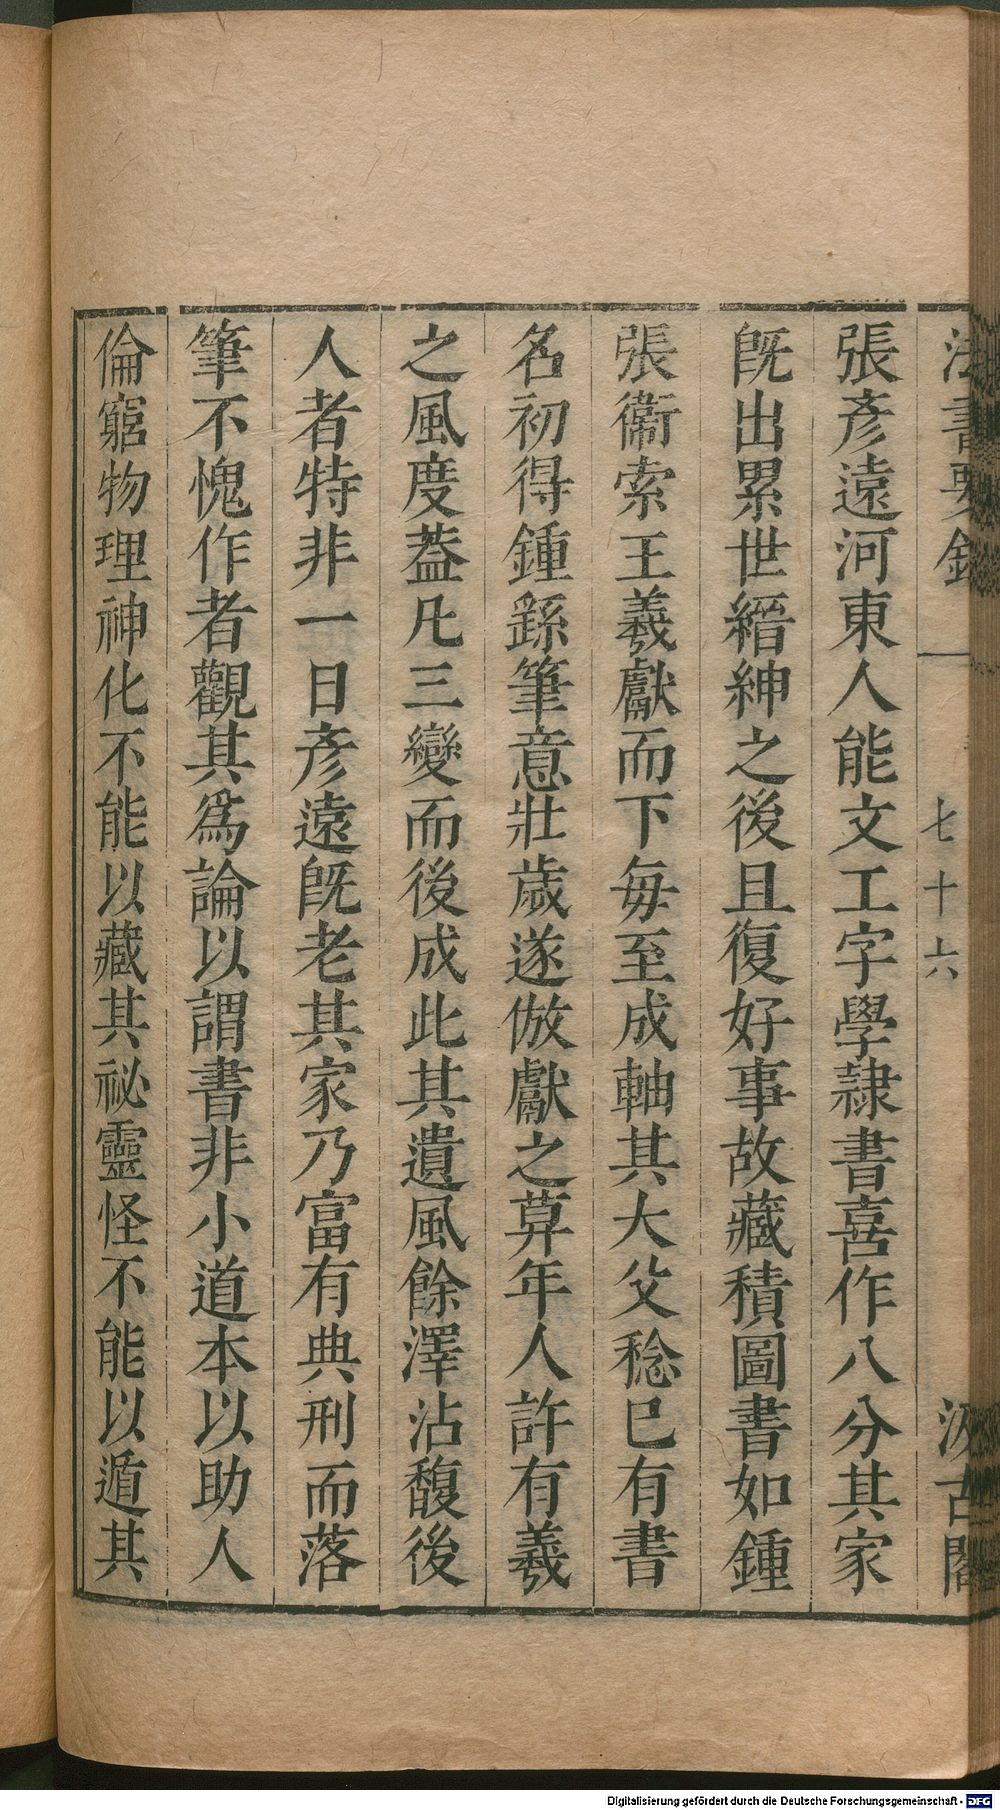 法書要錄
七十六
汲古閣
張彥遠河東人能文工字學隷書喜作八分其家
旣出累世縉紳之後且復好事故藏積圖書如鍾
張衞索王羲獻而下毎至成軸其大父稔已有書
名初得鍾繇筆意壯歲遂倣獻之草年人許有羲
之風度葢凡三變而後成此其遺風餘澤沾馥後
人者特非一日彥遠旣老其家乃富有典刑而落
筆不愧作者觀其爲論以謂書非小道本以助人
倫窮物理神化不能以藏其祕靈怪不能以遁其
Digitalisierung gefördert durch die Deutsche Forschungsgemeinschaft - DFG